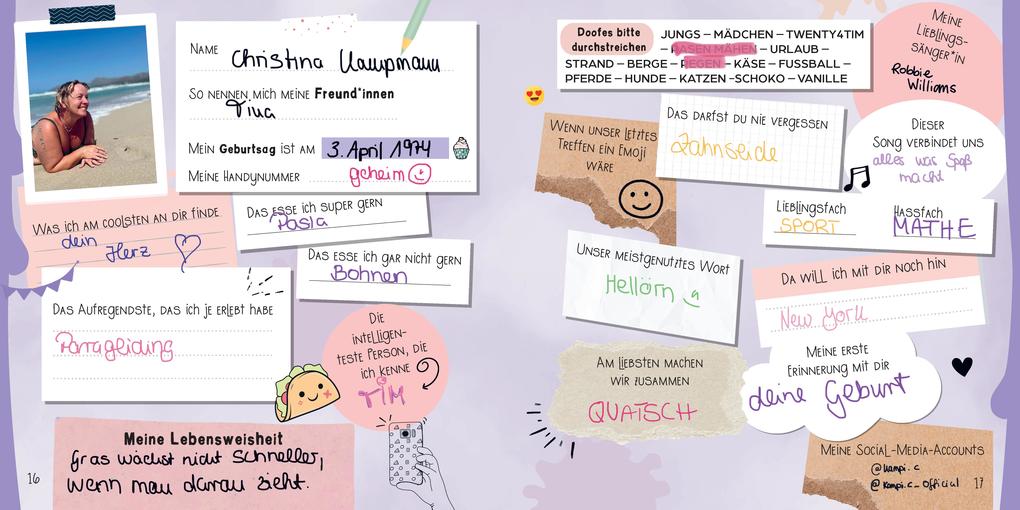 Name Christina Kampmann
So nennen mich meine Freund*innen
Tina
Mein Geburtsag ist am 3. April 1974
Meine Handynummer geheim
Was ich am coolsten an dir finde
dein Herz
Das esse ich super gern
Pasta
Das esse ich gar nicht gern
Bohnen
Das Aufregendste, das ich je erlebt habe
Parragleiding
Die
intelligen-
teste Person, die
ich kenne
TIM
Meine Lebensweisheit
Gras wächst nicht schneller,
wenn man daran zieht.
16
Doofes bitte
durchstreichen
JUNGS – MÄDCHEN – TWENTY4TIM
– RASEN MÄHEN – URLAUB –
STRAND – BERGE – REGEN – KÄSE – FUSSBALL –
PFERDE – HUNDE – KATZEN –SCHOKO – VANILLE
Meine
Lieblings-
sänger*in
Robbie
Williams
Wenn unser letztes
Treffen ein Emoji
wäre
Das darfst du nie vergessen
Zahnseide
Dieser
Song verbindet uns
alles was Spaß
macht
Lieblingsfach
SPORT
Hassfach
MATHE
Unser meistgenutztes Wort
Hellörn
Da will ich mit dir noch hin
New York
Am liebsten machen
wir zusammen
QUATSCH
Meine erste
Erinnerung mit dir
deine Geburt
Meine Social-Media-Accounts
@kampi.c
@kampi.c_official
17